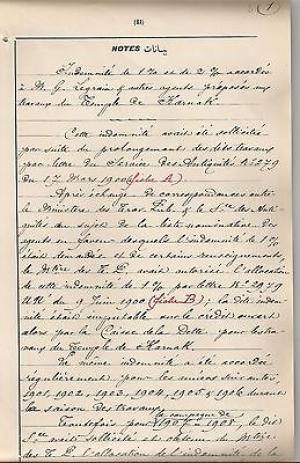 (1)
NOTES بيانات
Indemnité de 1% et de 2% accordés
à M. G. Legrain & autres agents préposés aux
travaux du Temple de Karnak.
Cette indemnité avait été sollicitée
par suite du prolongement des dits travaux
par lettre du Service des Antiquités No 279
du 17 Mars 1900 (fiche A)
Après échange de correspondances entre
le Ministère des Trav. Pub. & le Sce des Anti-
quités au sujet de la liste nominative des
agents en faveur desquels l'indemnité de 1%
était demandée et de certains renseignements,
le Mtère des T. P. avait autorisé l'allocation
de cette indemnité de 1% par lettre No 2979
du 9 Juin 1900 (fiche B); la dite indem-
nité était imputable sur le crédit ouvert
alors par la Caisse de la Dette pour les tra-
vaux du Temple de Karnak.
La même indemnité a été accordée
régulièrement pour les années suivantes
1901, 1902, 1903, 1904, 1905 & 1906 durant
la saison des travaux.
la campagne de
Toutefois pour 1907-1908, le dit
Sce avait sollicité et obtenu du Mtère
des T. P. l'allocation de l'indemnité de la